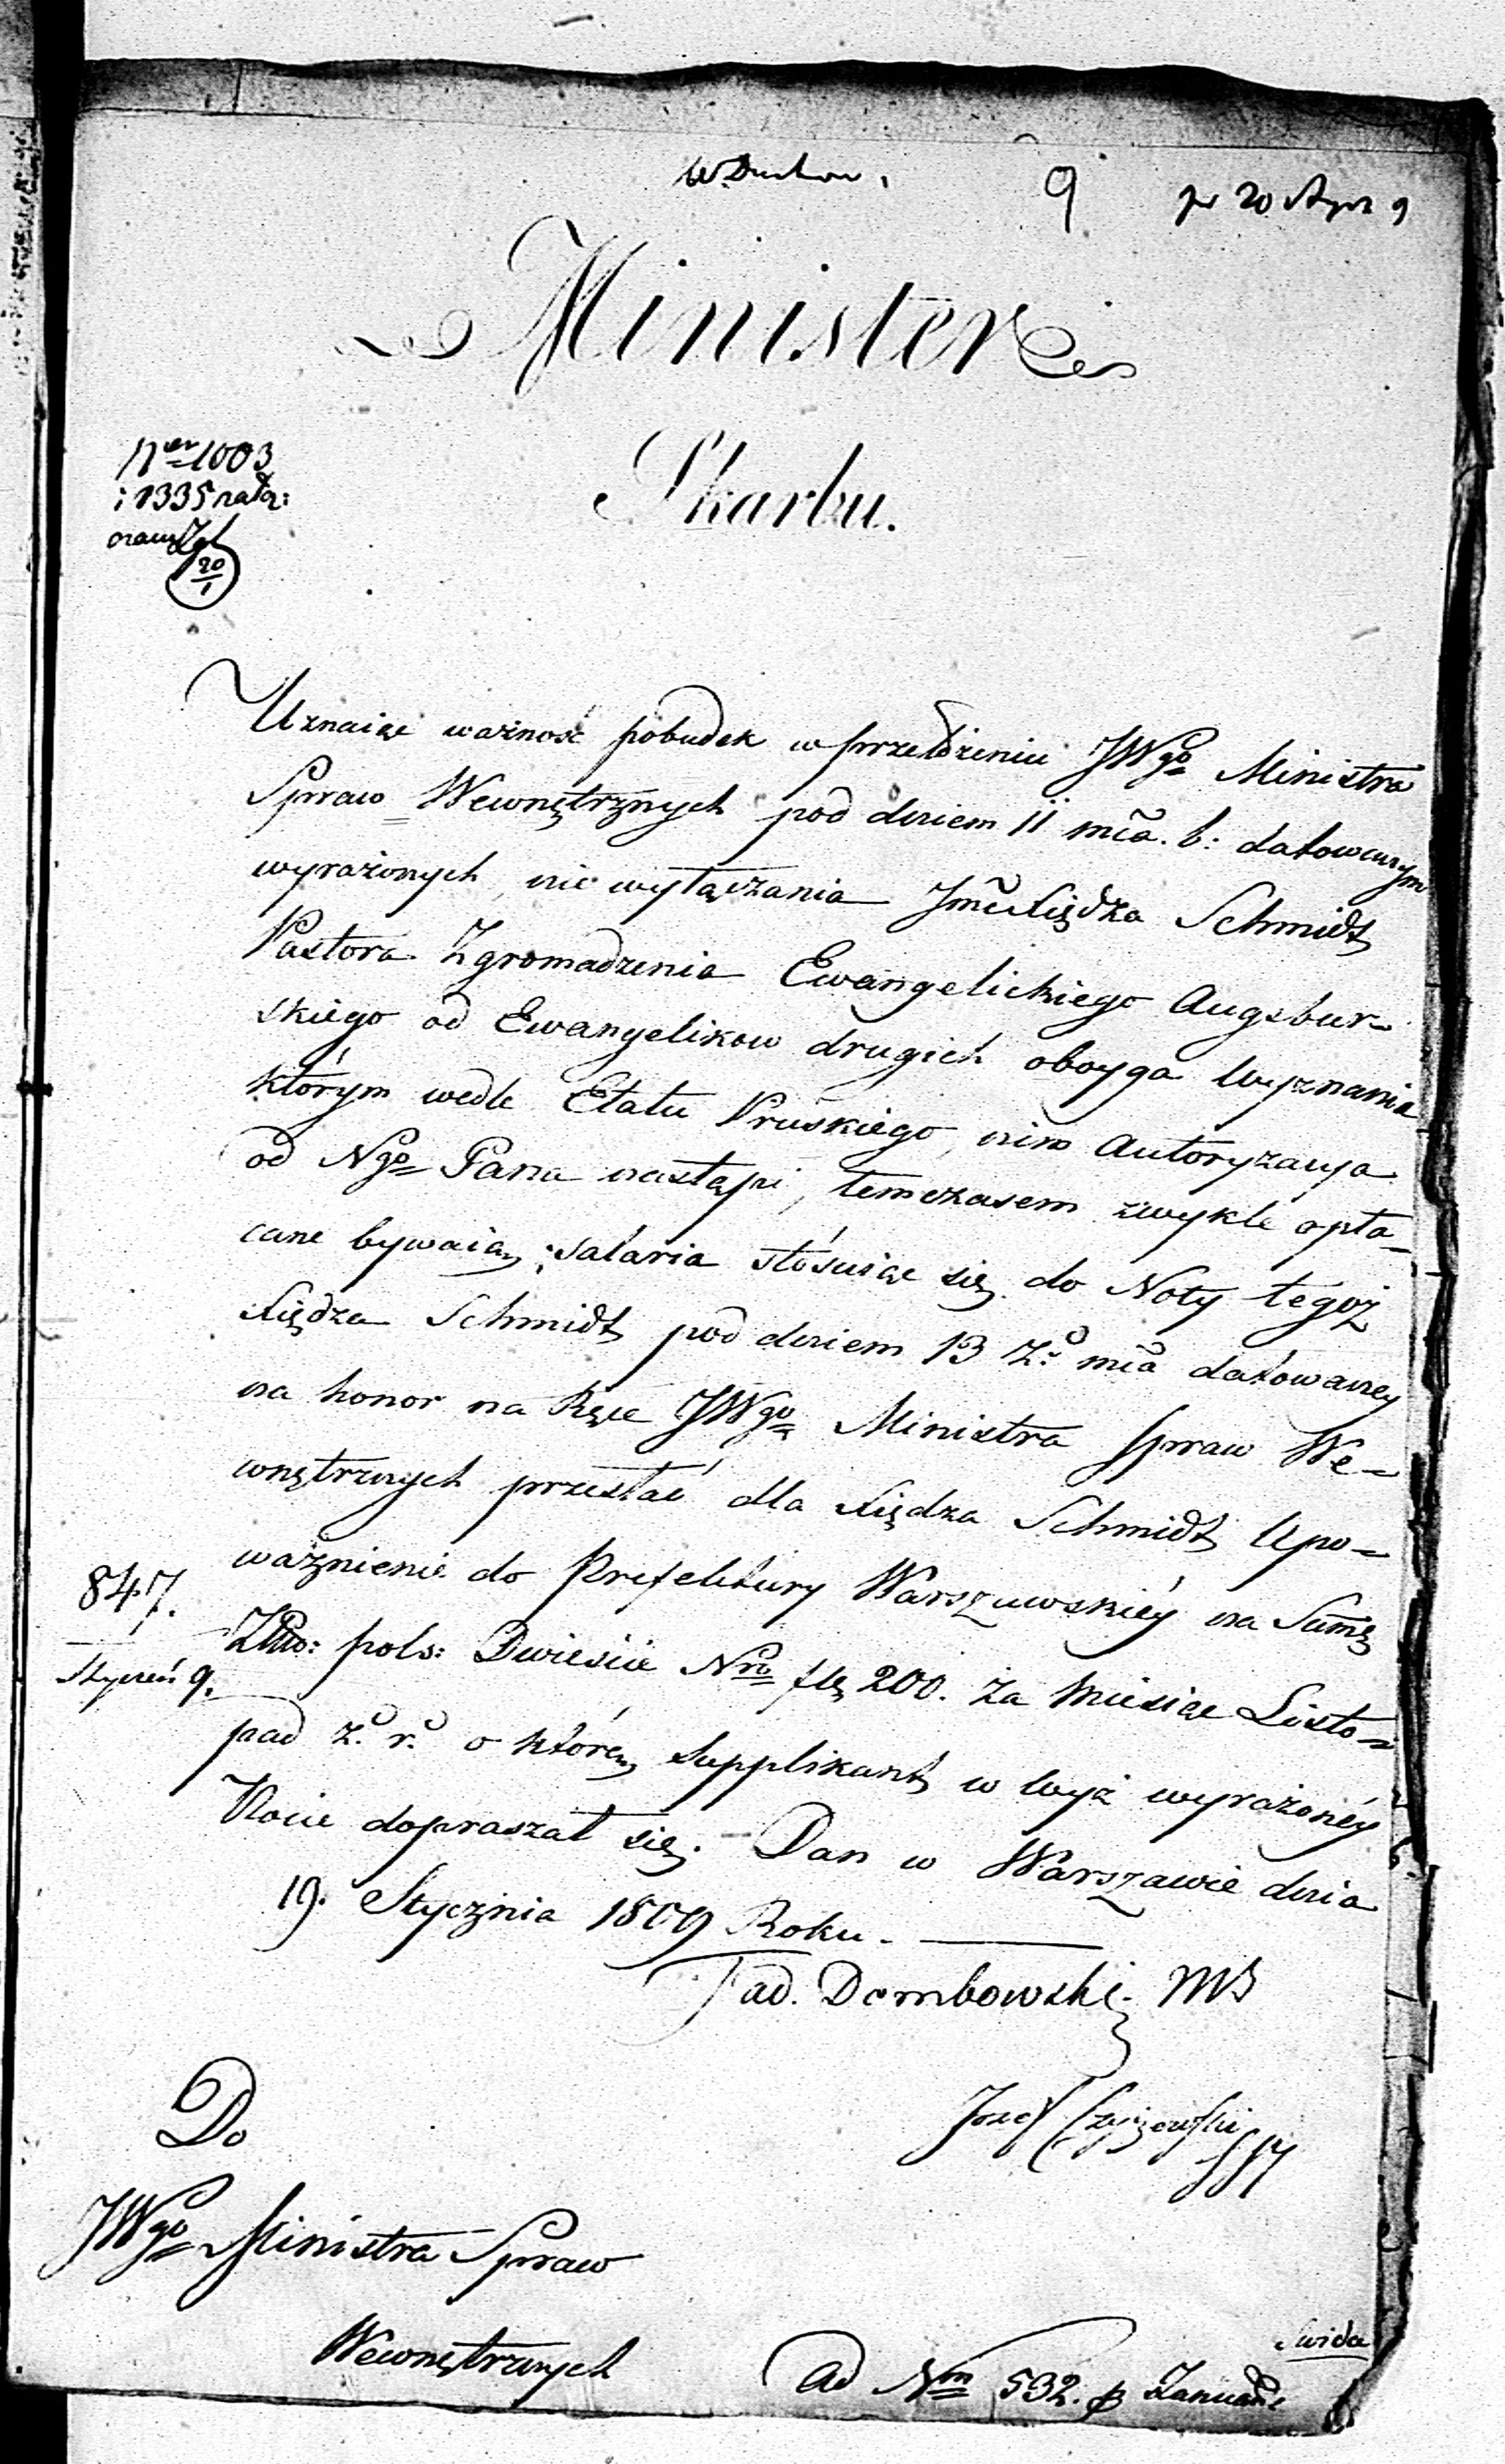 W. Duchow.
9
pr 20 Stycz 9
Minister
Skarbu.
Ner 1003
i 1335
20/1
Uznaiąc ważność pobudek w przełożeniu JWgo Ministra
Spraw Wewnętrznych pod dniem 11 mca. b: datowanym
wyrażonych, nie wyłączania Jmć Xiędza Schmidt
Pastora Zgromadzenia Ewangelickiego Augsbur-
skiego od Ewangelikow drugich oboyga Wyznania
którym wedle Etatu Pruskiego, nim Autoryzacya
od Ngo Pana nastąpi, temczasem zwykle opła-
cane bywaią, salaria stósuiąc się do Noty tegoż
Xiędza Schmidt pod dniem 13 z: mca datowaney
ma honor na Ręce JWgo Ministra Spraw We-
wnętrznych przesłać dla Xiędza Schmidt Upo-
ważnienie do Prefektury Warszawskiéy na Summę
847.
Złło: pols: Dwieście Nro fl 200. za Miesiąc Listo-
Styczeń 9.
pad z. r. o którą Supplikant w wyż wyrażonéy
Nocie dopraszał się. — Dan w Warszawie dnia
19. Stycznia 1809 Roku. —
Tad. Dembowski MS
Jozef
Do
JWgo Ministra Spraw
Wewnętrznych
Ad Nrm 532. p Januar